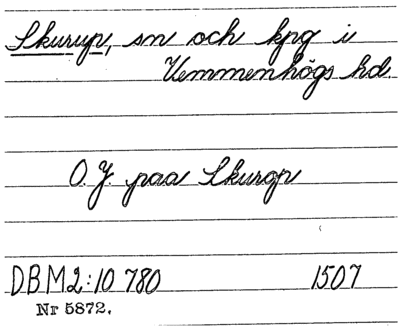 Skurup, sn och kpg i
Vemmenhögs hd.
O. J. paa Skurop
DBM2:10 780 1507
Nr 5872.